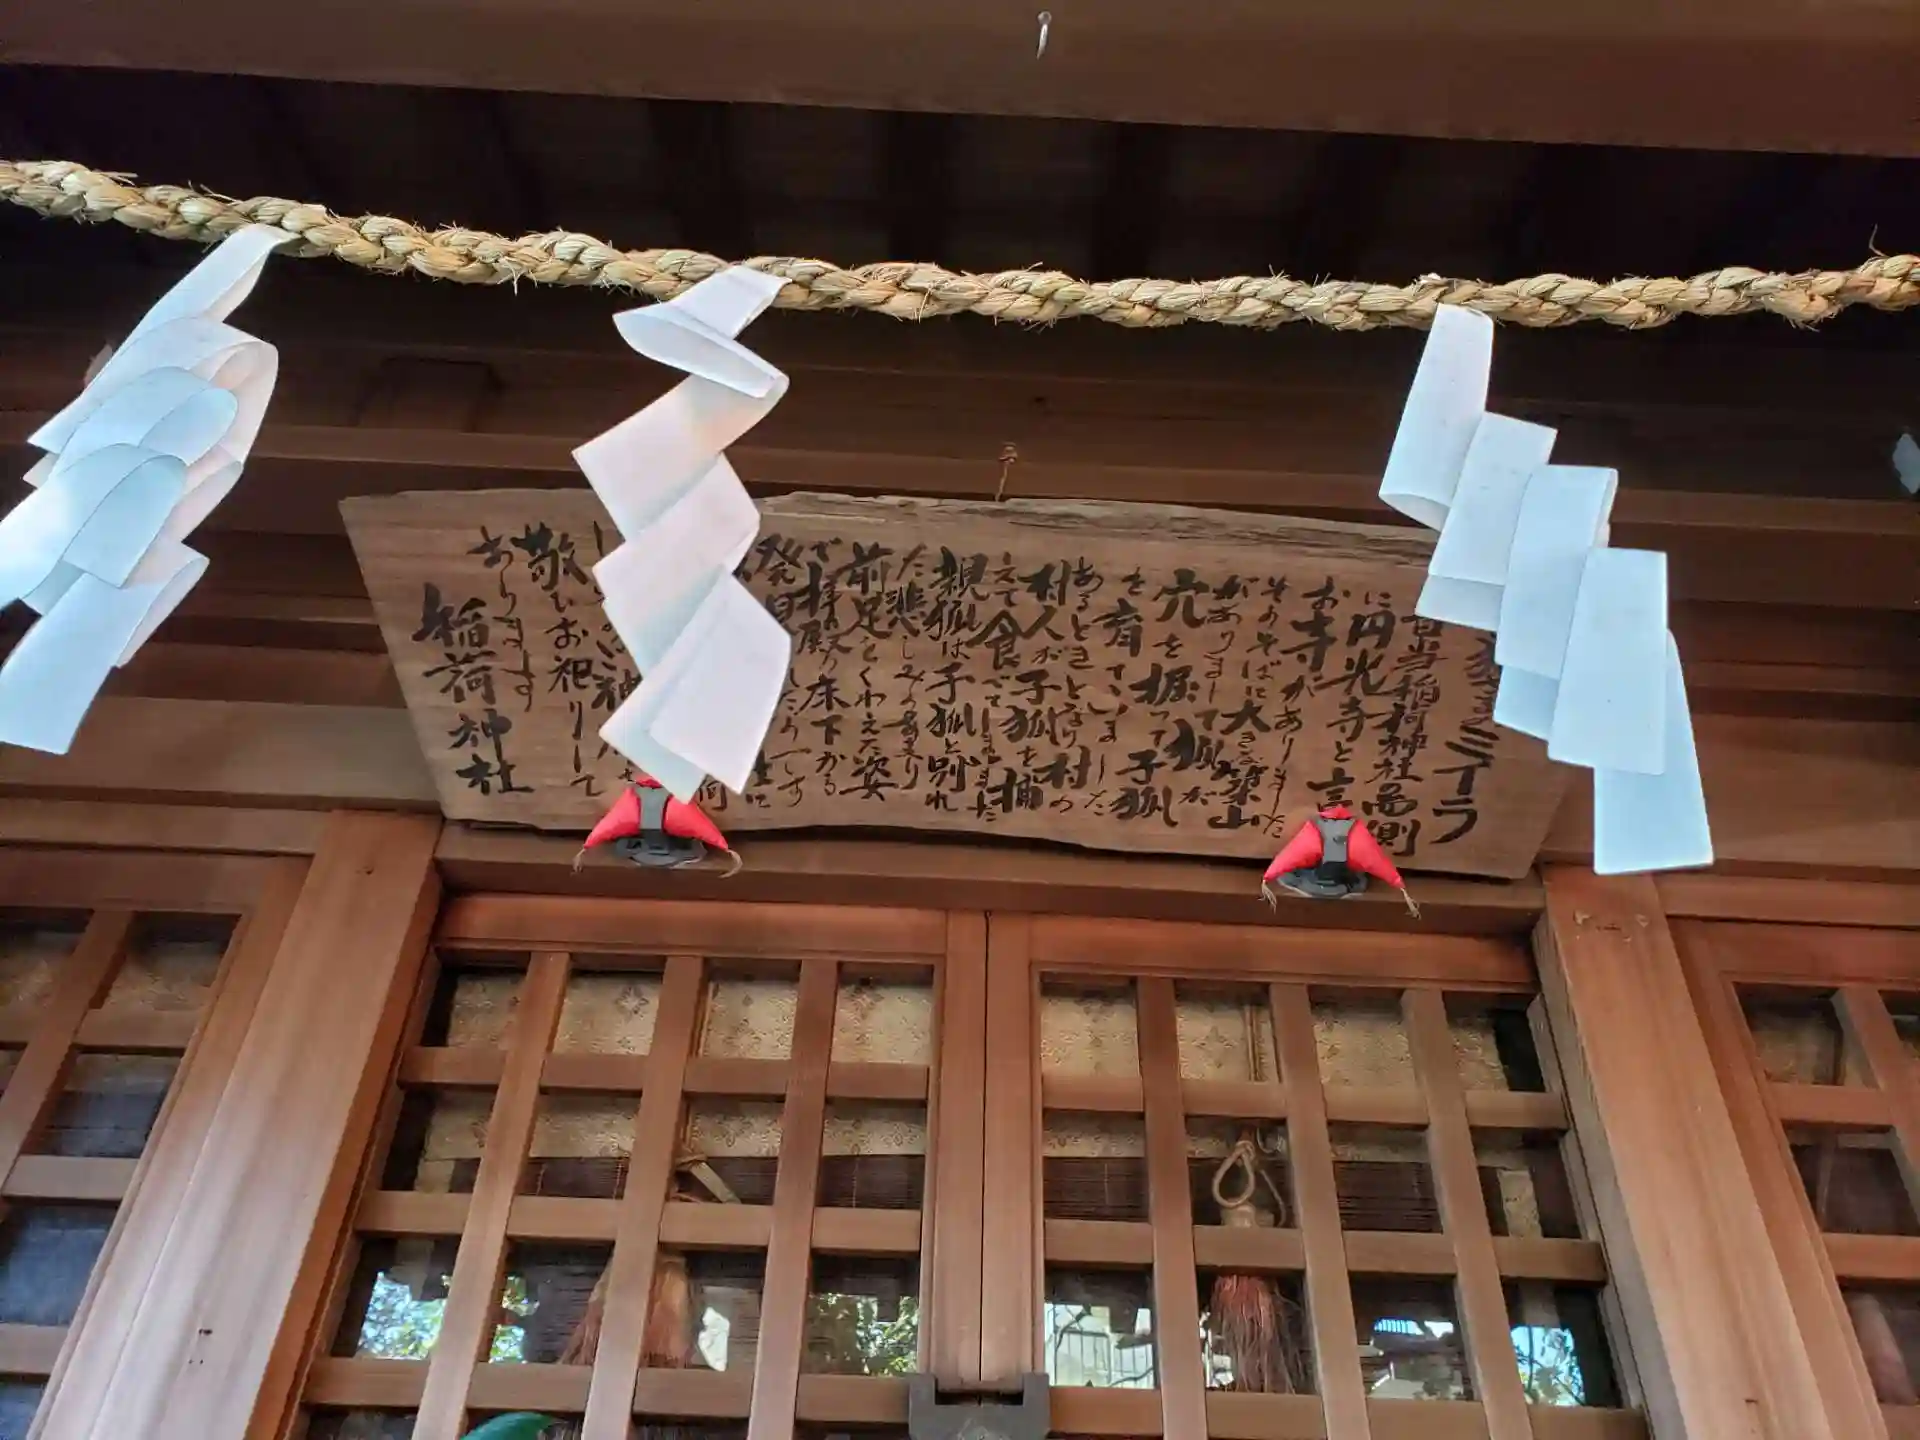 ミイラ
昔当稲荷神社西側
に円光寺と言
お寺がありました
そのそばに大きな築山
がありまして狐が
穴を掘って子狐
を育ていました
あるときとなり村の
村人が子狐を捕
えて食べてしまった
親狐は子狐と別れ
た悲しみのあまり
前足をくわえた姿
で拝殿の床下から
発見
敬いお祀りして
あります
稲荷神社